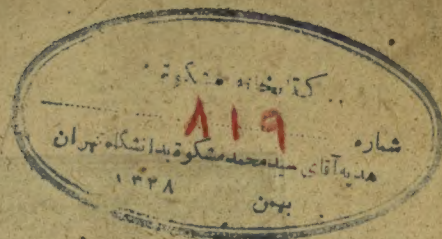 کتابخانه مشکوة
شماره ۸۱۹
هدیه آقای سیدمحمدمشکوة بدانشگاه تهران
۱۳۲۸
بهمن